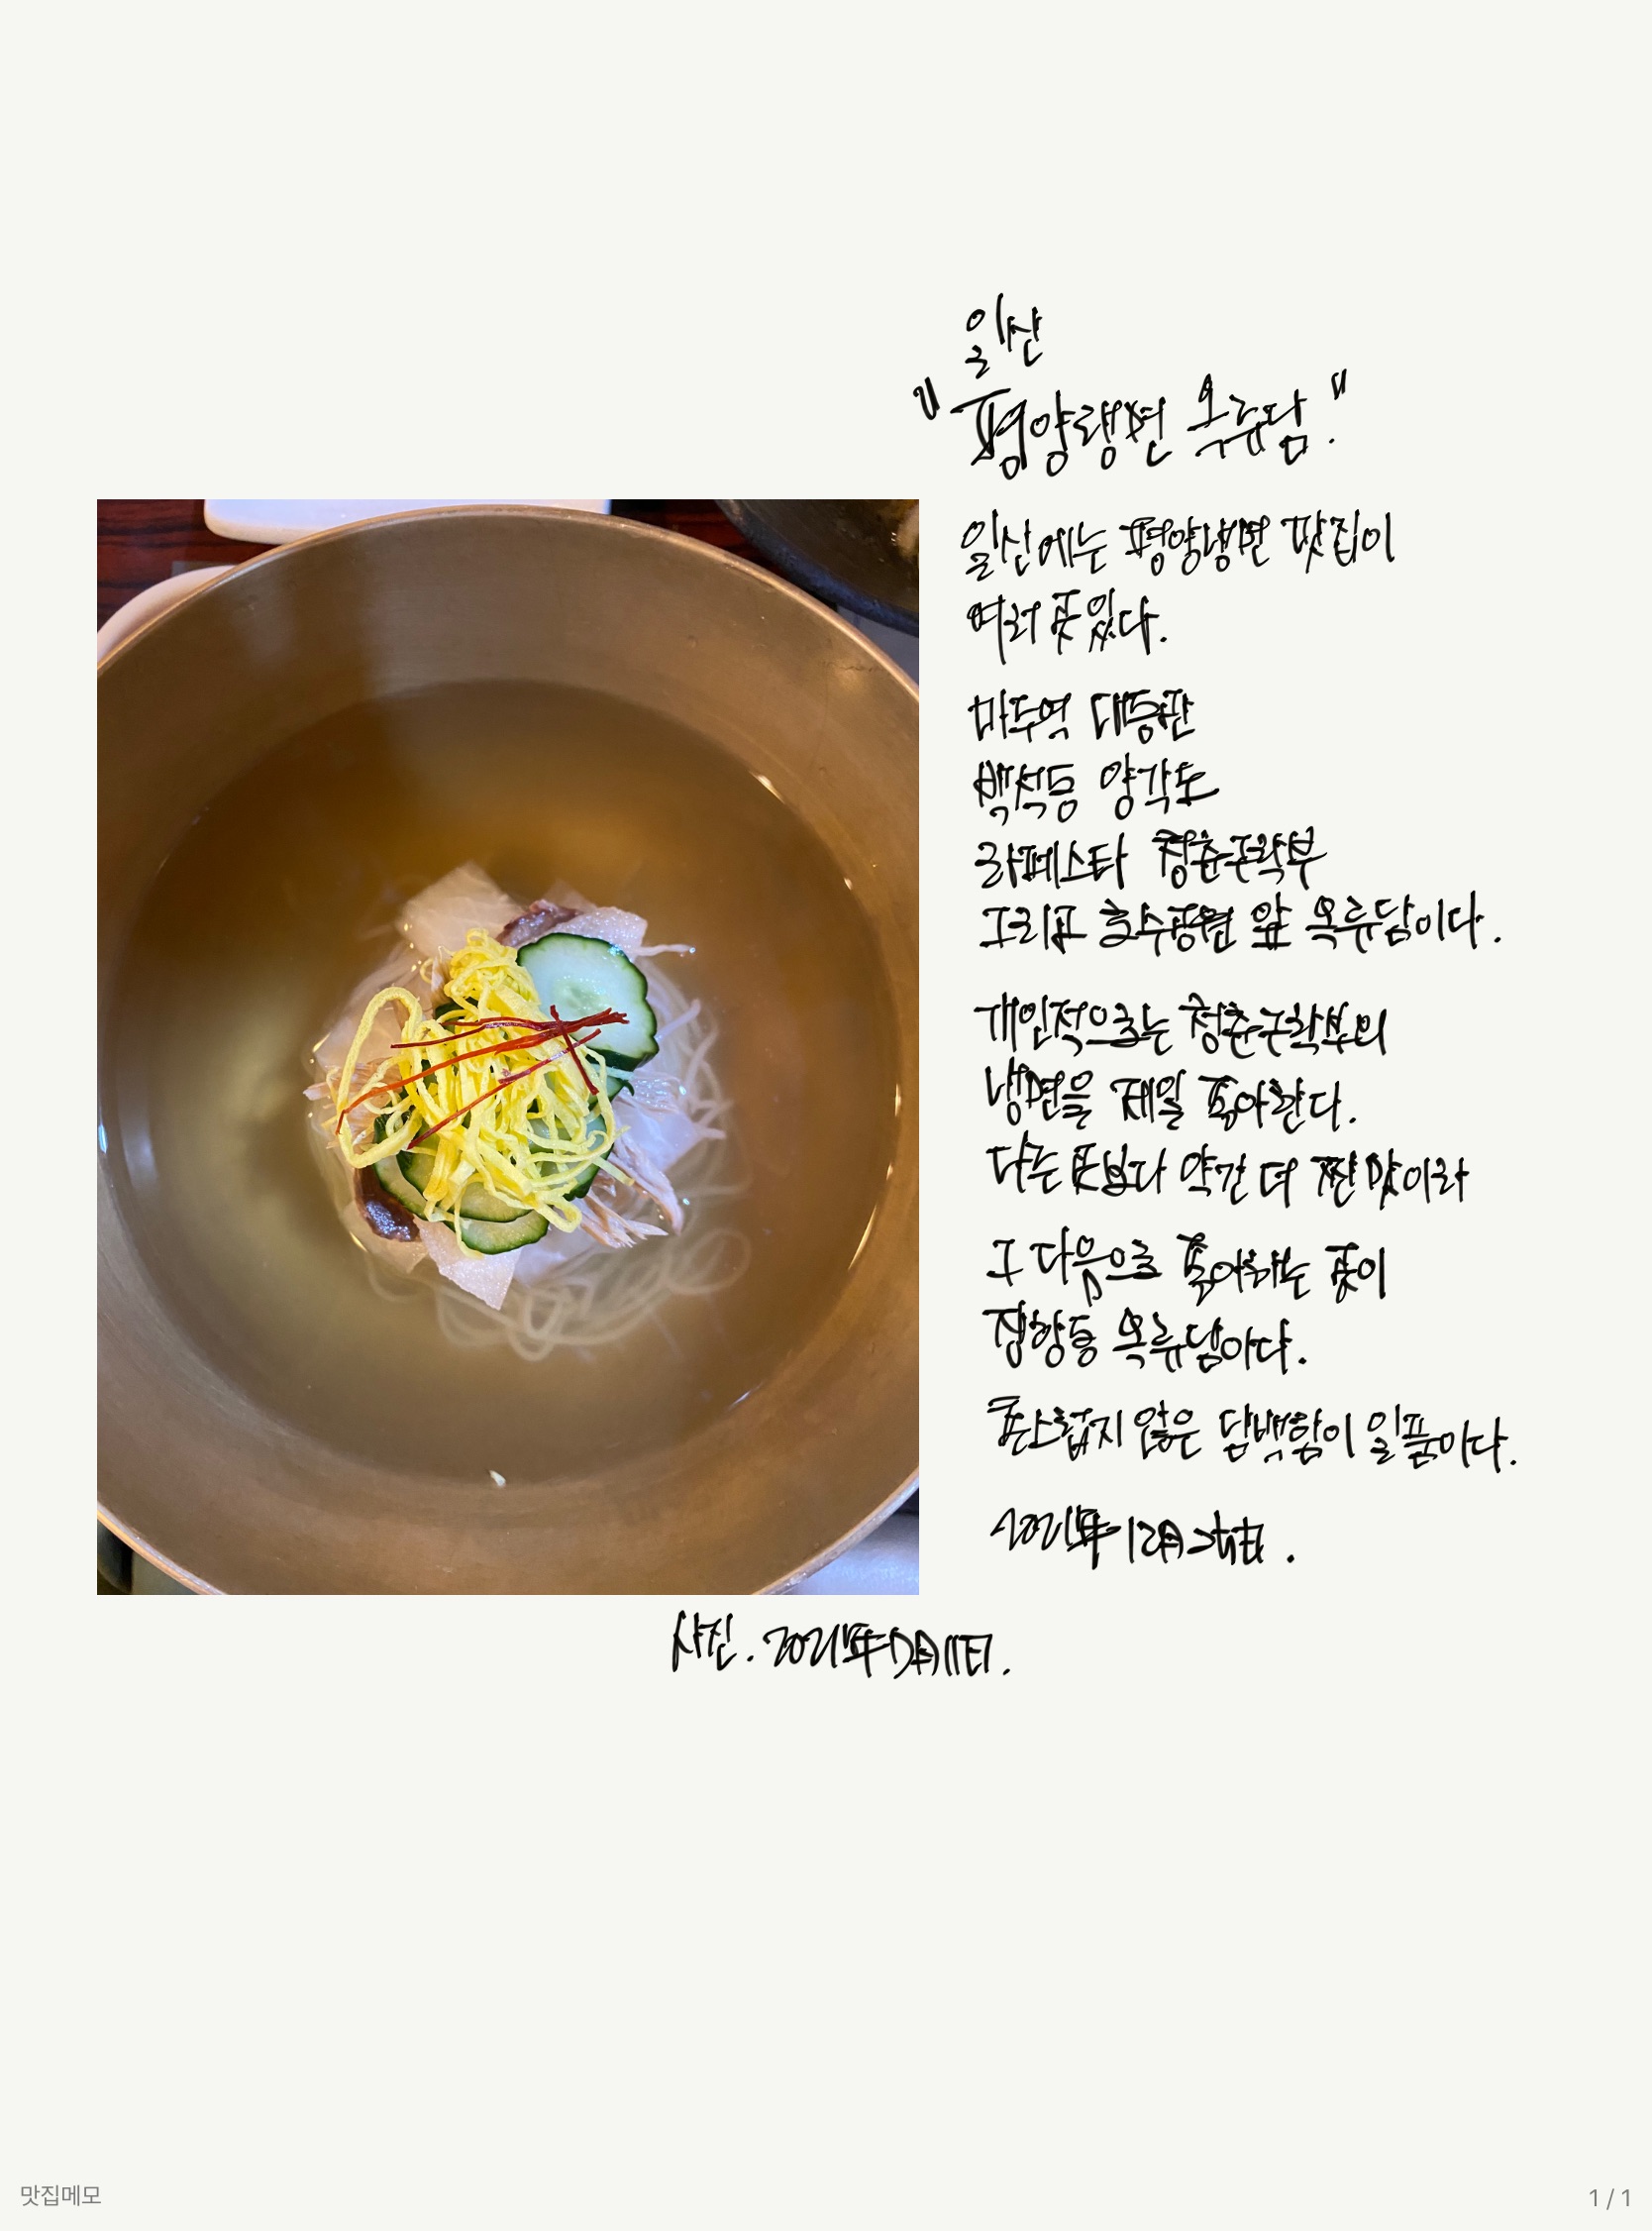 일산
"평양랭면 옥류담."
일산에는 평양냉면 맛집이
여러 곳 있다.
마두역 대동관
백석동 양각도
라페스타 청춘구락부
그리고 호수공원 앞 옥류담이다.
개인적으로는 청춘구락부의
냉면을 제일 좋아한다.
다른 곳보다 약간 더 찐맛이라
그 다음으로 좋아하는 곳이
장항동 옥류담이다.
촌스럽지 않은 담백함이 일품이다.
2021年 12月
사진. 2021年 11日.
맛집메모
1 / 1